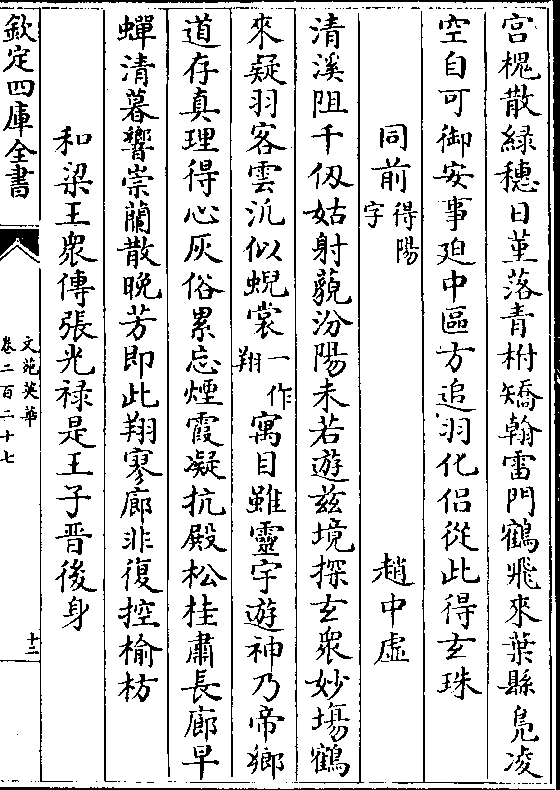 宫槐散緑穗日堇落青柎矯翰雷門鶴飛來葉縣鳬凌
空自可御安事廹中區方追羽化侣從此得玄珠
同前得陽字 趙中虛
清溪阻千仭姑射藐汾陽未若遊兹境探玄衆妙塲鶴
來疑羽客雲汎似蜺裳一作翔寓目雖靈宇遊神乃帝鄉
道存真理得心灰俗累忘煙霞凝抗殿松桂肅長廊早
蟬清暮響崇蘭散晚芳即此翔寥廊非復控榆枋
和梁王衆傳張光禄是王子晋後身
欽定四庫全書
文苑英華
卷二百二十七
十二